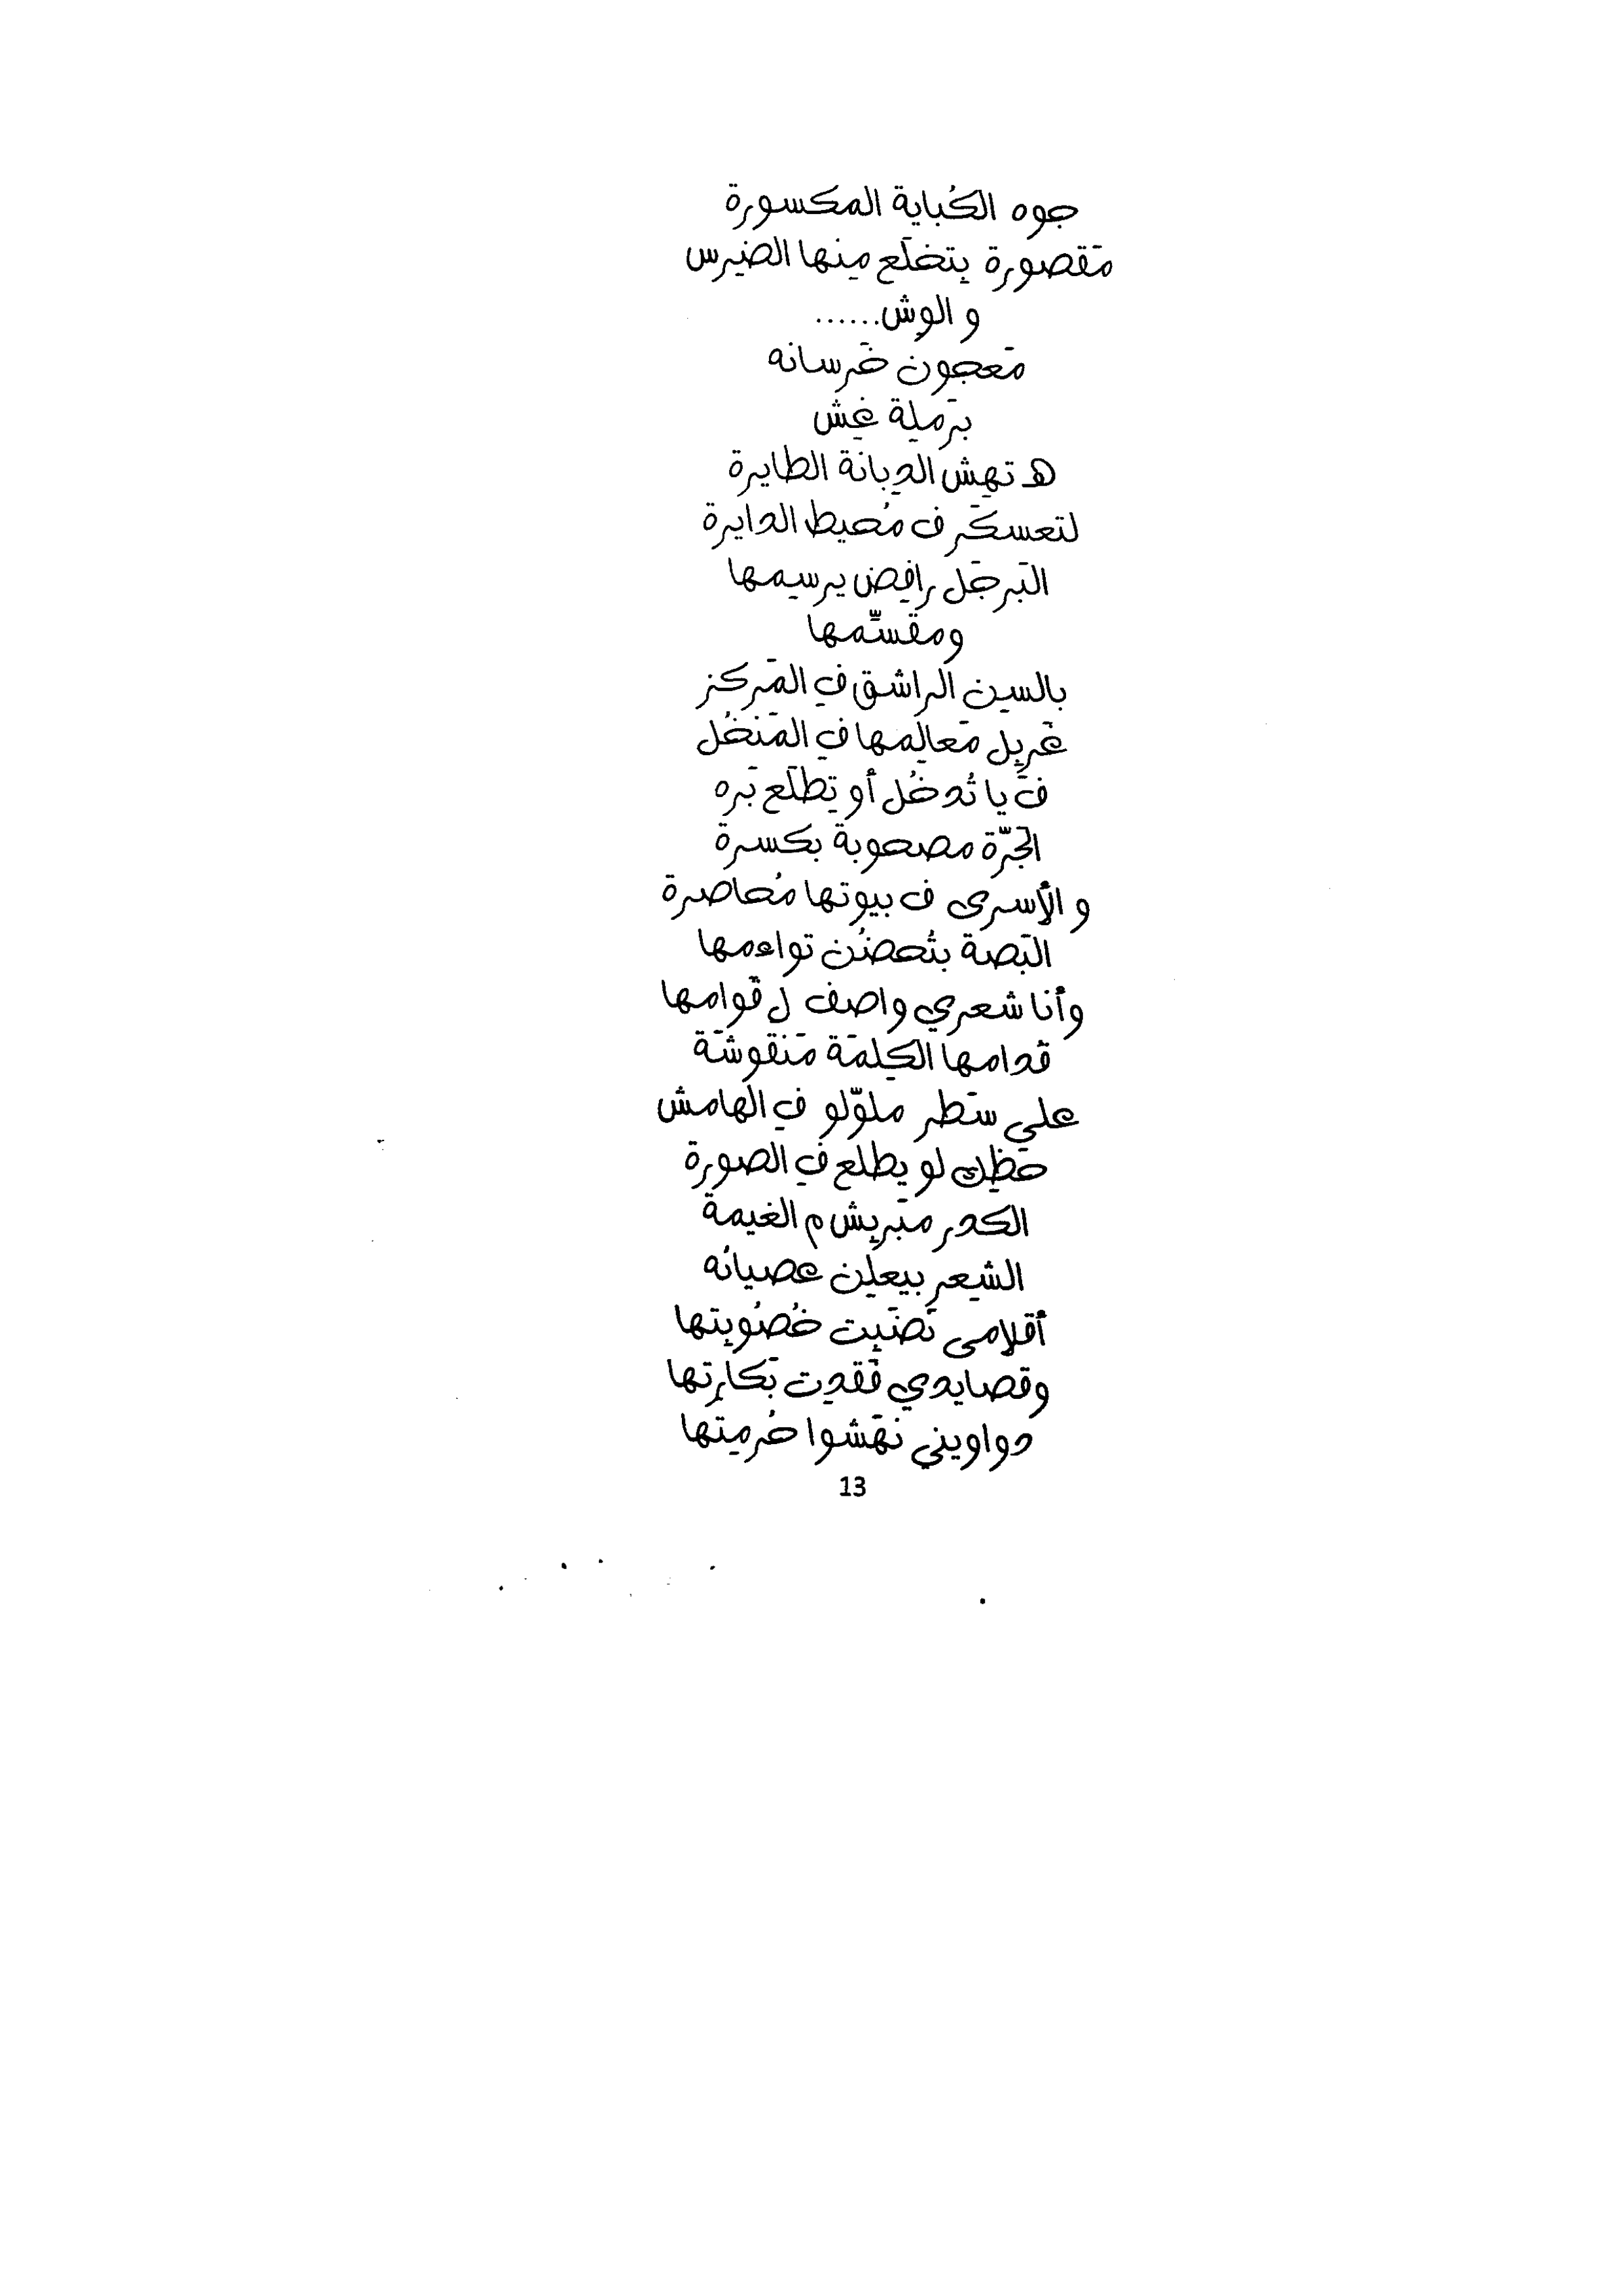 جوه الكُباية المكسورة
مَقصورة بِتخلَع مِنها الضِرس
و الوِش......
مَعجون خَرسانه
برَملِة غِش
هـ تهِش الدِبانَة الطايرة
لتعسكَر ف مُحيط الدايرة
البَرجَل رافِض يرسِمها
ومقسَّمها
بالسِن الراشق في المَركز
غَربِل مَعالِمها في المَنخُل
فَ يا تُدخُل أو تِطلَع بَره
الجَرّة مصحوبة بكسرة
و الأسرى ف بيوتها مُحاصرة
البَصة بتُحضُن تواءمها
وأنا شعري واصف ل قَوامها
قدامها الكِلمَة مَنقوشَة
علي سَطر ملوّلو في الهامش
حَظِك لو يطلع في الصورة
الكدر متبَربِش م الغيمة
الشِعر بيعلِن عصيانُه
أقلامى نَضَبِت خُصُوبِتها
وقصايدي فَقدِت بَكارِتها
دواويني نَهَشوا حُرمِتها
13